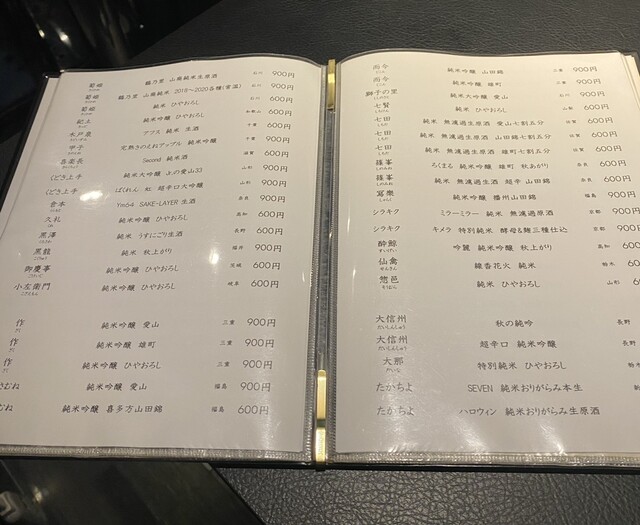 菊姫 鶴乃里 山廃純米生原酒 石川 900円
菊姫 鶴乃里 山廃純米 2018～2020各種(常温) 石川 900円
菊姫 純米 ひやおろし 石川 600円
紀土 純米吟醸 ひやおろし 和歌山 600円
木戸泉 アフス 純米 生酒 千葉 600円
甲子 定熟きのえねアップル 純米吟醸 千葉 900円
喜楽長 Second 純米酒 滋賀 600円
くどき上手 純米大吟醸 Jr.の愛山33 山形 900円
くどき上手 ばくれん 超辛口大吟醸 山形 900円
倉本 Ym64 SAKE-LAYER 生酒 奈良 600円
久礼 純米吟醸 ひやおろし 高知 600円
黒澤 純米 うすにごり生酒 長野 600円
黒龍 純米 秋上がり 福井 900円
御慶事 純米吟醸 ひやおろし 茨城 600円
小左衛門 純米吟醸 ひやおろし 岐阜 600円
作 純米吟醸 愛山 三重 900円
作 純米吟醸 雄町 三重 900円
作 純米吟醸 ひやおろし 三重 900円
むね 純米吟醸 愛山 福島 900円
むね 純米吟醸 喜多方山田錦 福島 600円
而今 純米吟醸 山田錦 三重 900円
而今 純米吟醸 雄町 三重 900円
獅子の里 純米大吟醸 愛山 石川 900円
七賢 純米 ひやおろし 600円
七田 純米 無濾過生原酒 愛山七割五分 佐賀 600円
七田 純米 無濾過生原酒 山田錦七割五分 佐賀 600円
七田 純米 無濾過生原酒 雄町七割五分 佐賀 600円
篠峯 ろくまる 純米吟醸 雄町 秋あがり 奈良 600円
篠峯 純米 無濾過生酒 超辛 山田錦 奈良 600円
寫樂 純米吟醸 播州山田錦 福島 900円
シラキク ミラーミラー 純米 無濾過原酒 京都 900円
シラキク キメラ 特別純米 酵母&麹三種仕込 京都 900円
酔鯨 吟麗 純米吟醸 秋上がり 高知 600円
仙禽 線香花火 純米 栃木 60
惣邑 純米 ひやおろし 山形 6
大信州 秋の純吟 長野
大信州 超辛口 純米吟醸 長野
大那 特別純米 ひやおろし 栃木
たかちよ SEVEN 純米おりがらみ本生
たかちよ ハロウィン 純米おりがらみ生原酒